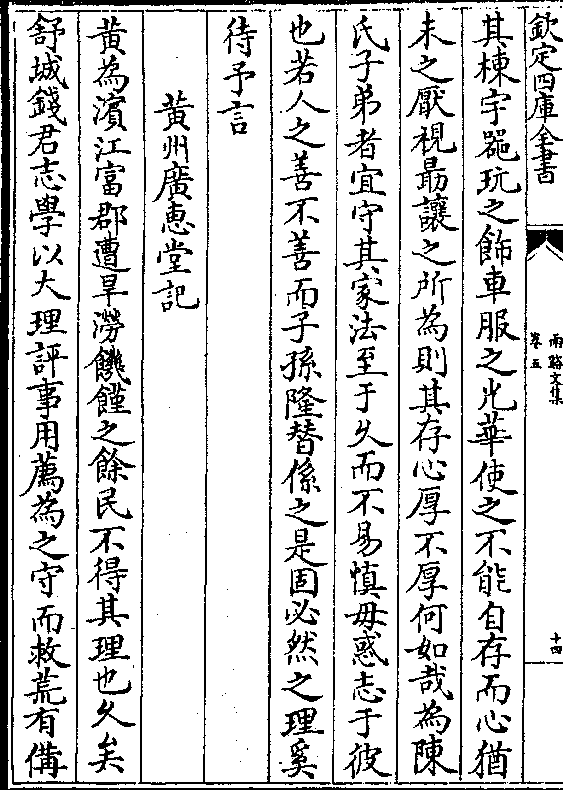 欽定四庫全書
兩谿文集
卷五
十四
其棟宇器玩之飾車服之光華使之不能自存而心猶
未之厭視勗讓之所為則其存心厚不厚何如哉為陳
氏子弟者宜守其家法至于久而不易慎毋惑志于彼
也若人之善不善而子孫隆替係之是固必然之理奚
待予言
黄州廣惠堂記
黄為濵江富郡遭旱澇饑饉之餘民不得其理也久矣
舒城錢君志學以大理評事用薦為之守而救荒有備